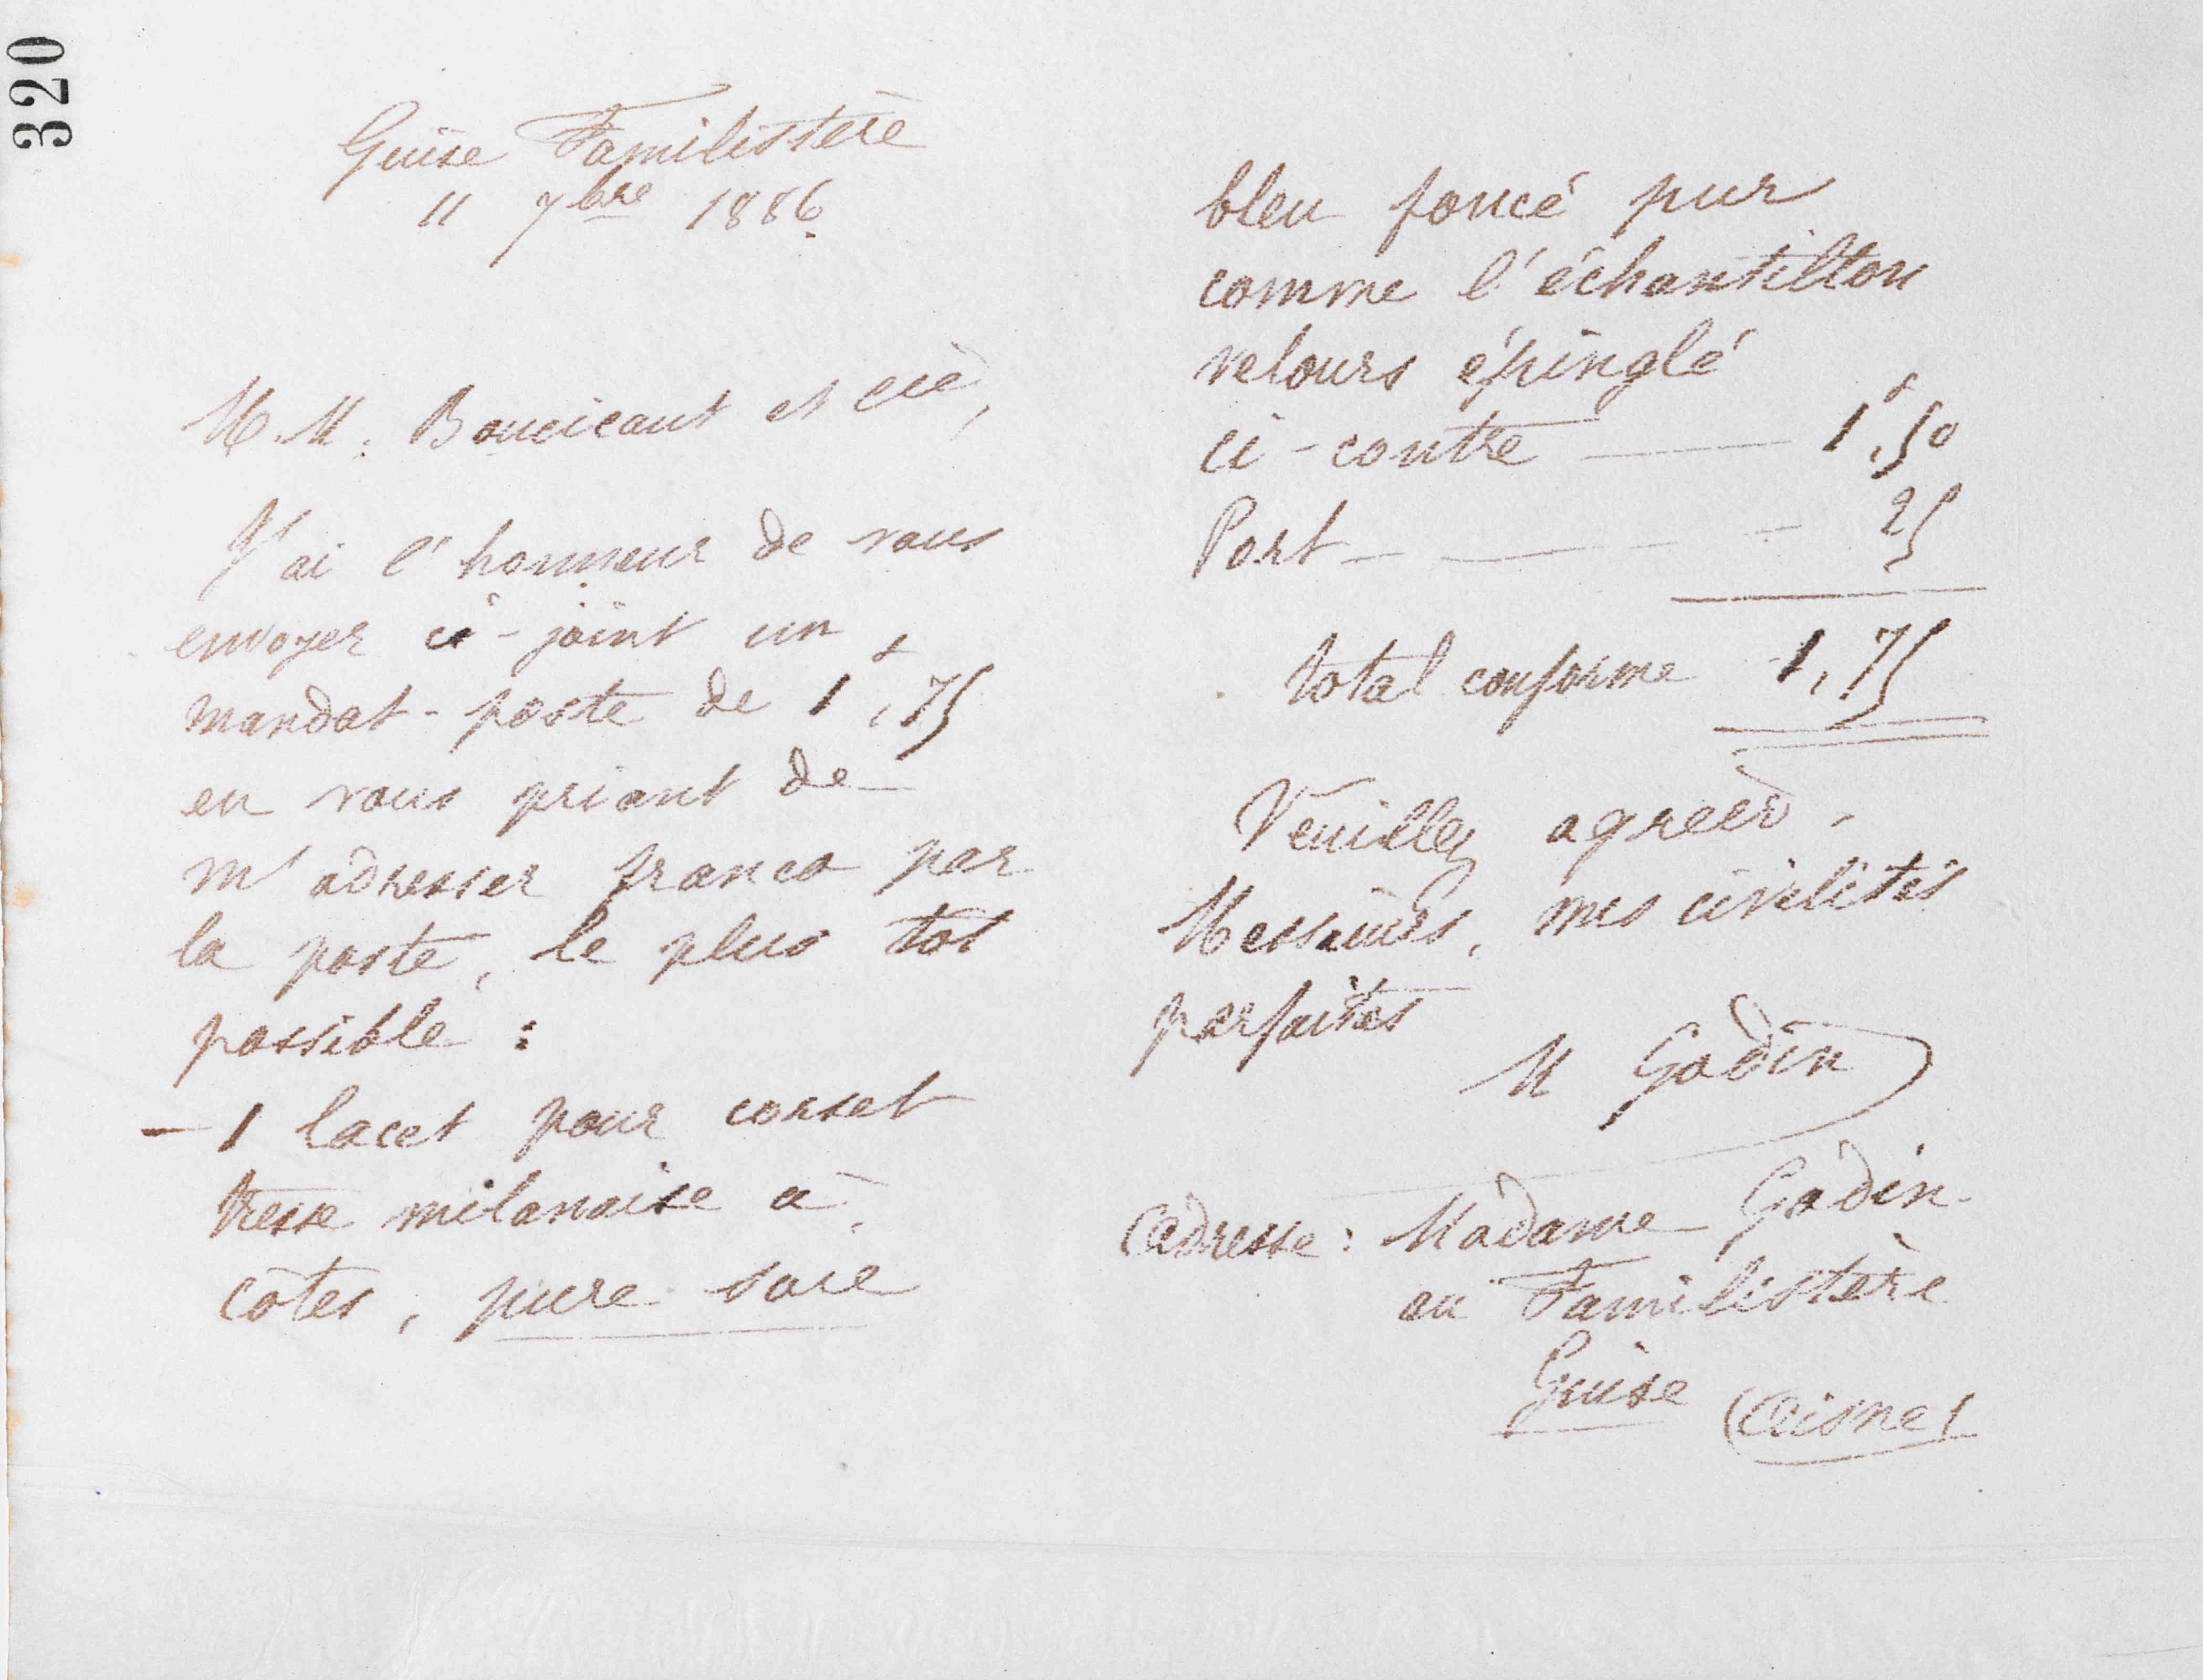 320
Guise Familistère
11 7bre 1886
M.M. Boucicaut et cie,
J'ai l'honneur de vous
envoyer ci-joint un
mandat-poste de 1f,75
en vous priant de
m'adresser franco par
la poste, le plus tôt
possible :
- 1 lacet pour corset
tresse milanaise à
côtes, pure soie
bleu foncé pur
comme l'échantillon
velours épinglé
ci-contre — 1f,50
Port — 25
total conforme 1,75
Veuillez agréer,
Messieurs, mes civilités
parfaites
M Godin
Adresse : Madame Godin
au Familistère
Guise (Aisne)